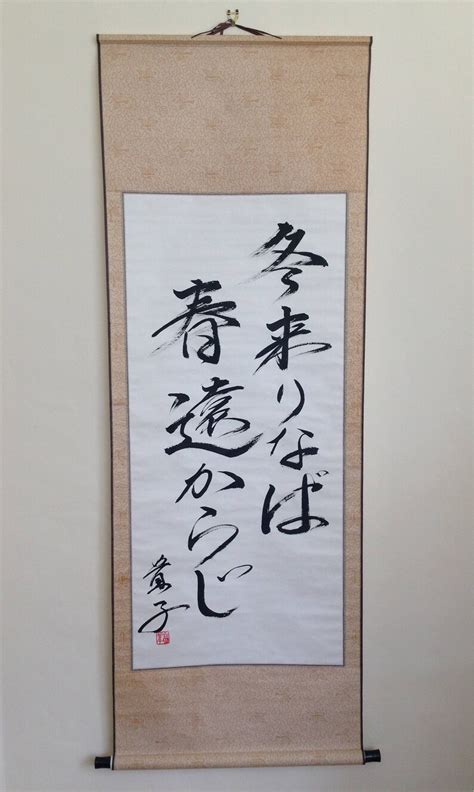 冬来りなば
春遠からじ